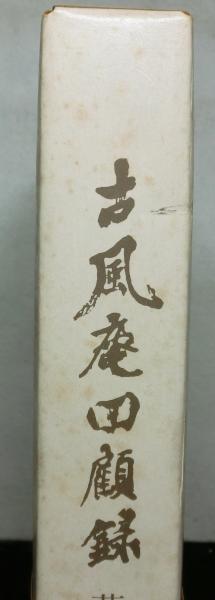 古風庵回顧録